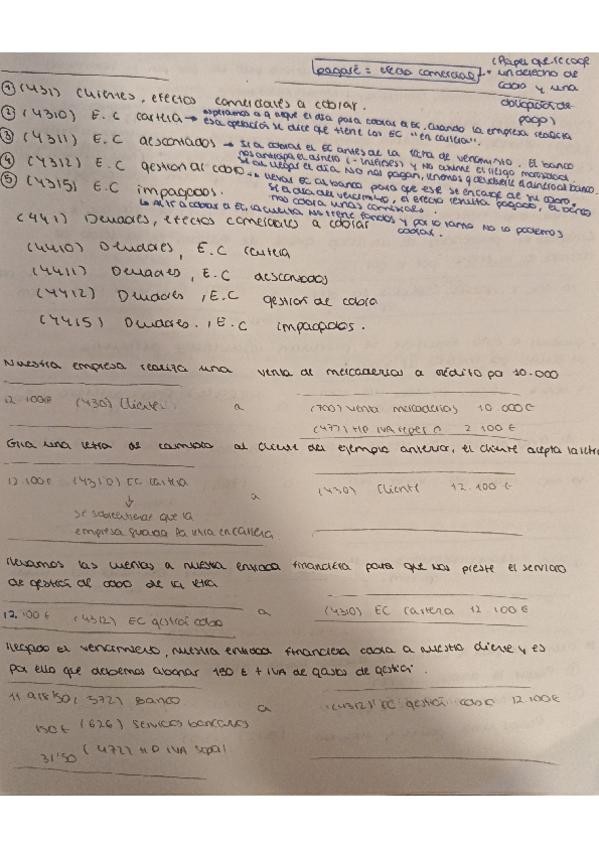 (Papel que recoge
pagaré = efecto comercial un derecho de
cobro y una
obligación de
pago)
① (431) Clientes, efectos comerciales a cobrar.
② (4310) E.C cartera → esperamos a que el día para cobrar el EC. Cuando la empresa realiza
esa operación se dice que tiene los EC "en cartera".
③ (4311) E.C descontados → Si a cobrar el EC antes de la fecha de vencimiento. El banco
nos anticipa el dinero (-intereses) y NO asume el riesgo
Si al llegar el día NO nos pagan, tenemos q devolverle el dinero al banco.
④ (4312) E.C gestión al cobro → llevar EC al banco para que ese se encargue de su cobro,
Si el día del vencimiento, el efecto resulta pagado, el banco
nos cobra unas comisiones.
⑤ (4315) E.C impagados.
↳ al ir a cobrar el EC, la cuenta NO tiene fondos y por lo tanto NO lo podemos
cobrar.
(441) Deudores, efectos comerciales a cobrar
(4410) Deudores, E.C cartera
(4411) Deudores, E.C descontados
(4412) Deudores, E.C gestión de cobro
(4415) Deudores., E.C impagados.
Nuestra empresa realiza una venta de mercaderías a crédito por 10.000
12.100€ (430) Clientes a (700) Venta mercaderías 10.000€
(477) HP IVA reper n 2.100€
Gira una letra de cambio al cliente del ejemplo anterior, el cliente acepta la letra
12.100€ (4310) EC cartera a (430) Cliente 12.100€
↓
Se sobreentiende que la
empresa guarda la letra en cartera
llevamos las cuentas a nuestra entidad financiera para que nos preste el servicio
de gestión de cobro de la letra
12.100€ (4312) EC gestión cobro a (4310) EC cartera 12.100€
llegado el vencimiento, nuestra entidad financiera cobra a nuestro cliente y es
por ello que debemos abonar 150€ + IVA de gastos de gestión.
11.918'50 (572) Banco a (4312) EC gestión cobro 12.100€
150€ (626) Servicios bancarios
31'50 (472) HP IVA sopor